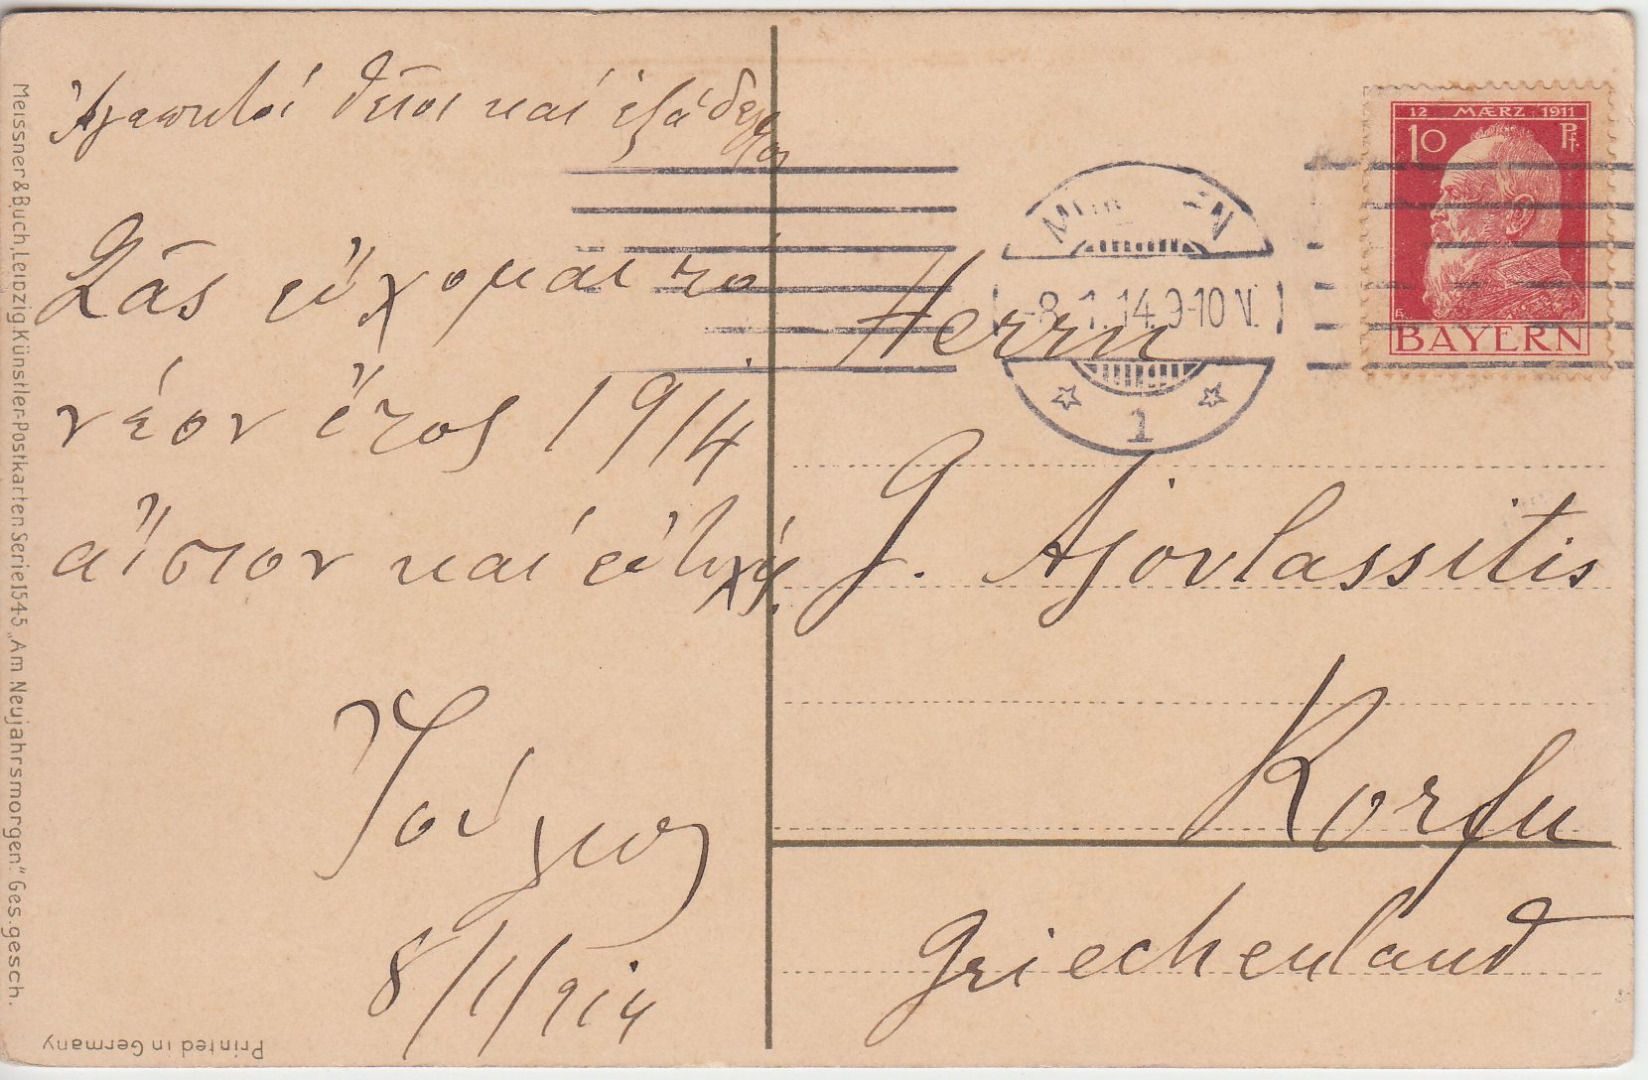 Ἀγαπητοί θεῖοι καί ἐξάδελφοι
Σᾶς εὔχομαι τό
νέον ἔτος 1914
αἴσιον καί εὐτυχές.
8/1/914
Herrn
J. Ajovlassitis
Korfu
Griechenland
12 MÆRZ 1911
10 Pf.
BAYERN
MÜNCHEN
-8.1.14.9-10 V.
1
Meissner & Buch, Leipzig, Künstler-Postkarten Serie 1545 „Am Neujahrsmorgen.“ Ges. gesch.
Printed in Germany